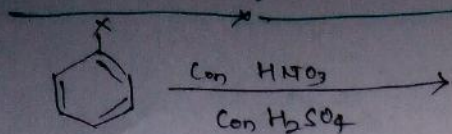 X
Con HNO3
Con H2SO4